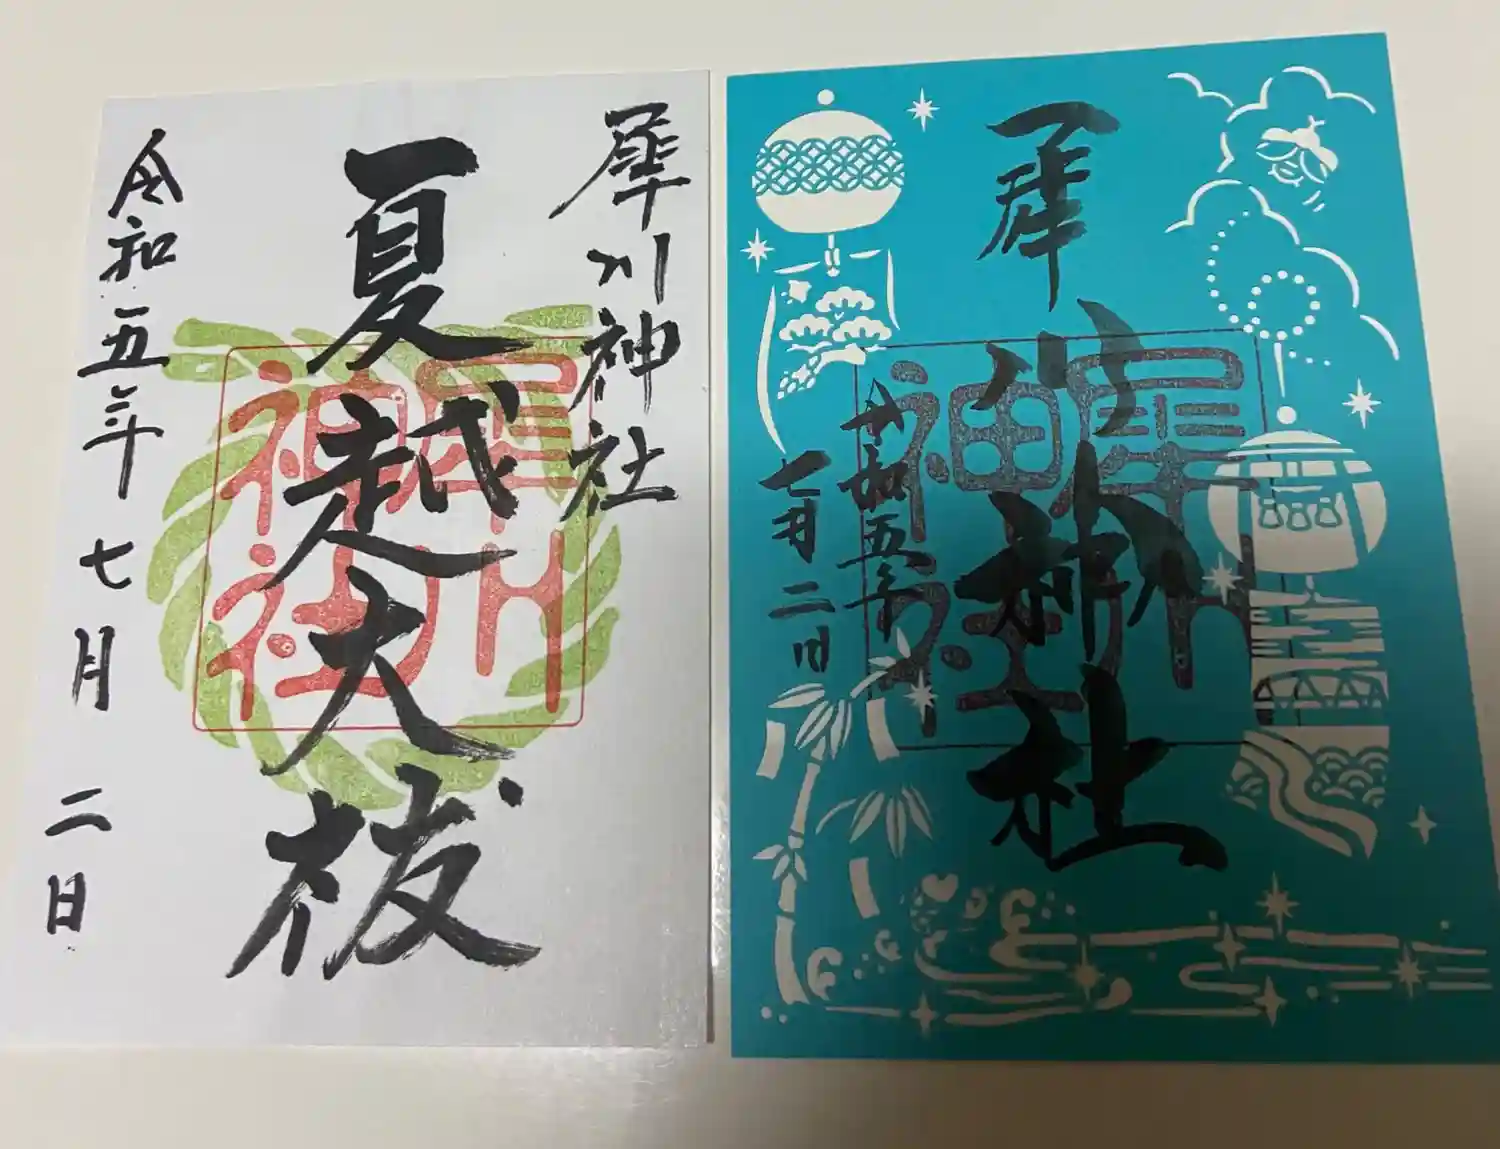 犀川神社
夏越大祓
令和五年七月二日
犀川神社
犀川神社
令和五年
七月二日
犀川神社